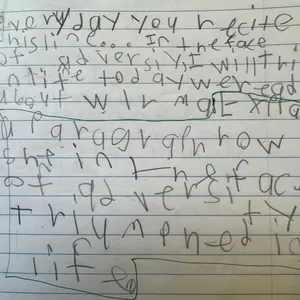 very day you recite
his line... In the face
of adversity, I will tri
in life today we read
about wilma
u l aragraph row
she in the fac
of adversity
triumphed i
life.